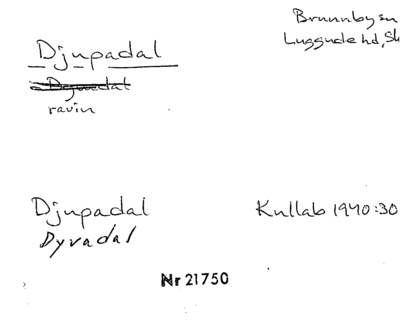 Djupadal
Brunnby sn
Luggude hd, Sk
ravin
Djupadal
Kullab 1940:30
Dyvadal
Nr 21750